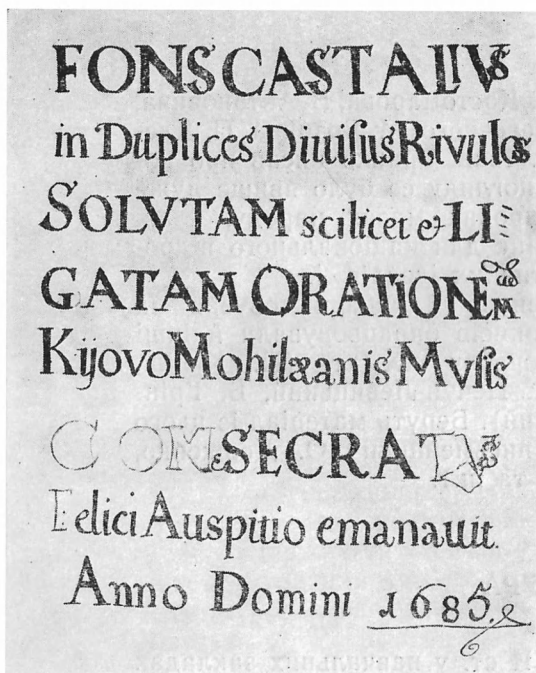 FONS CASTALIVS
in Duplices Diuisus Rivulos
SOLVTAM scilicet & LI
GATAM ORATIONEM
Kijovo Mohilæanis Musis
CONSECRATVS
Felici Auspitio emanauit.
Anno Domini 1685.